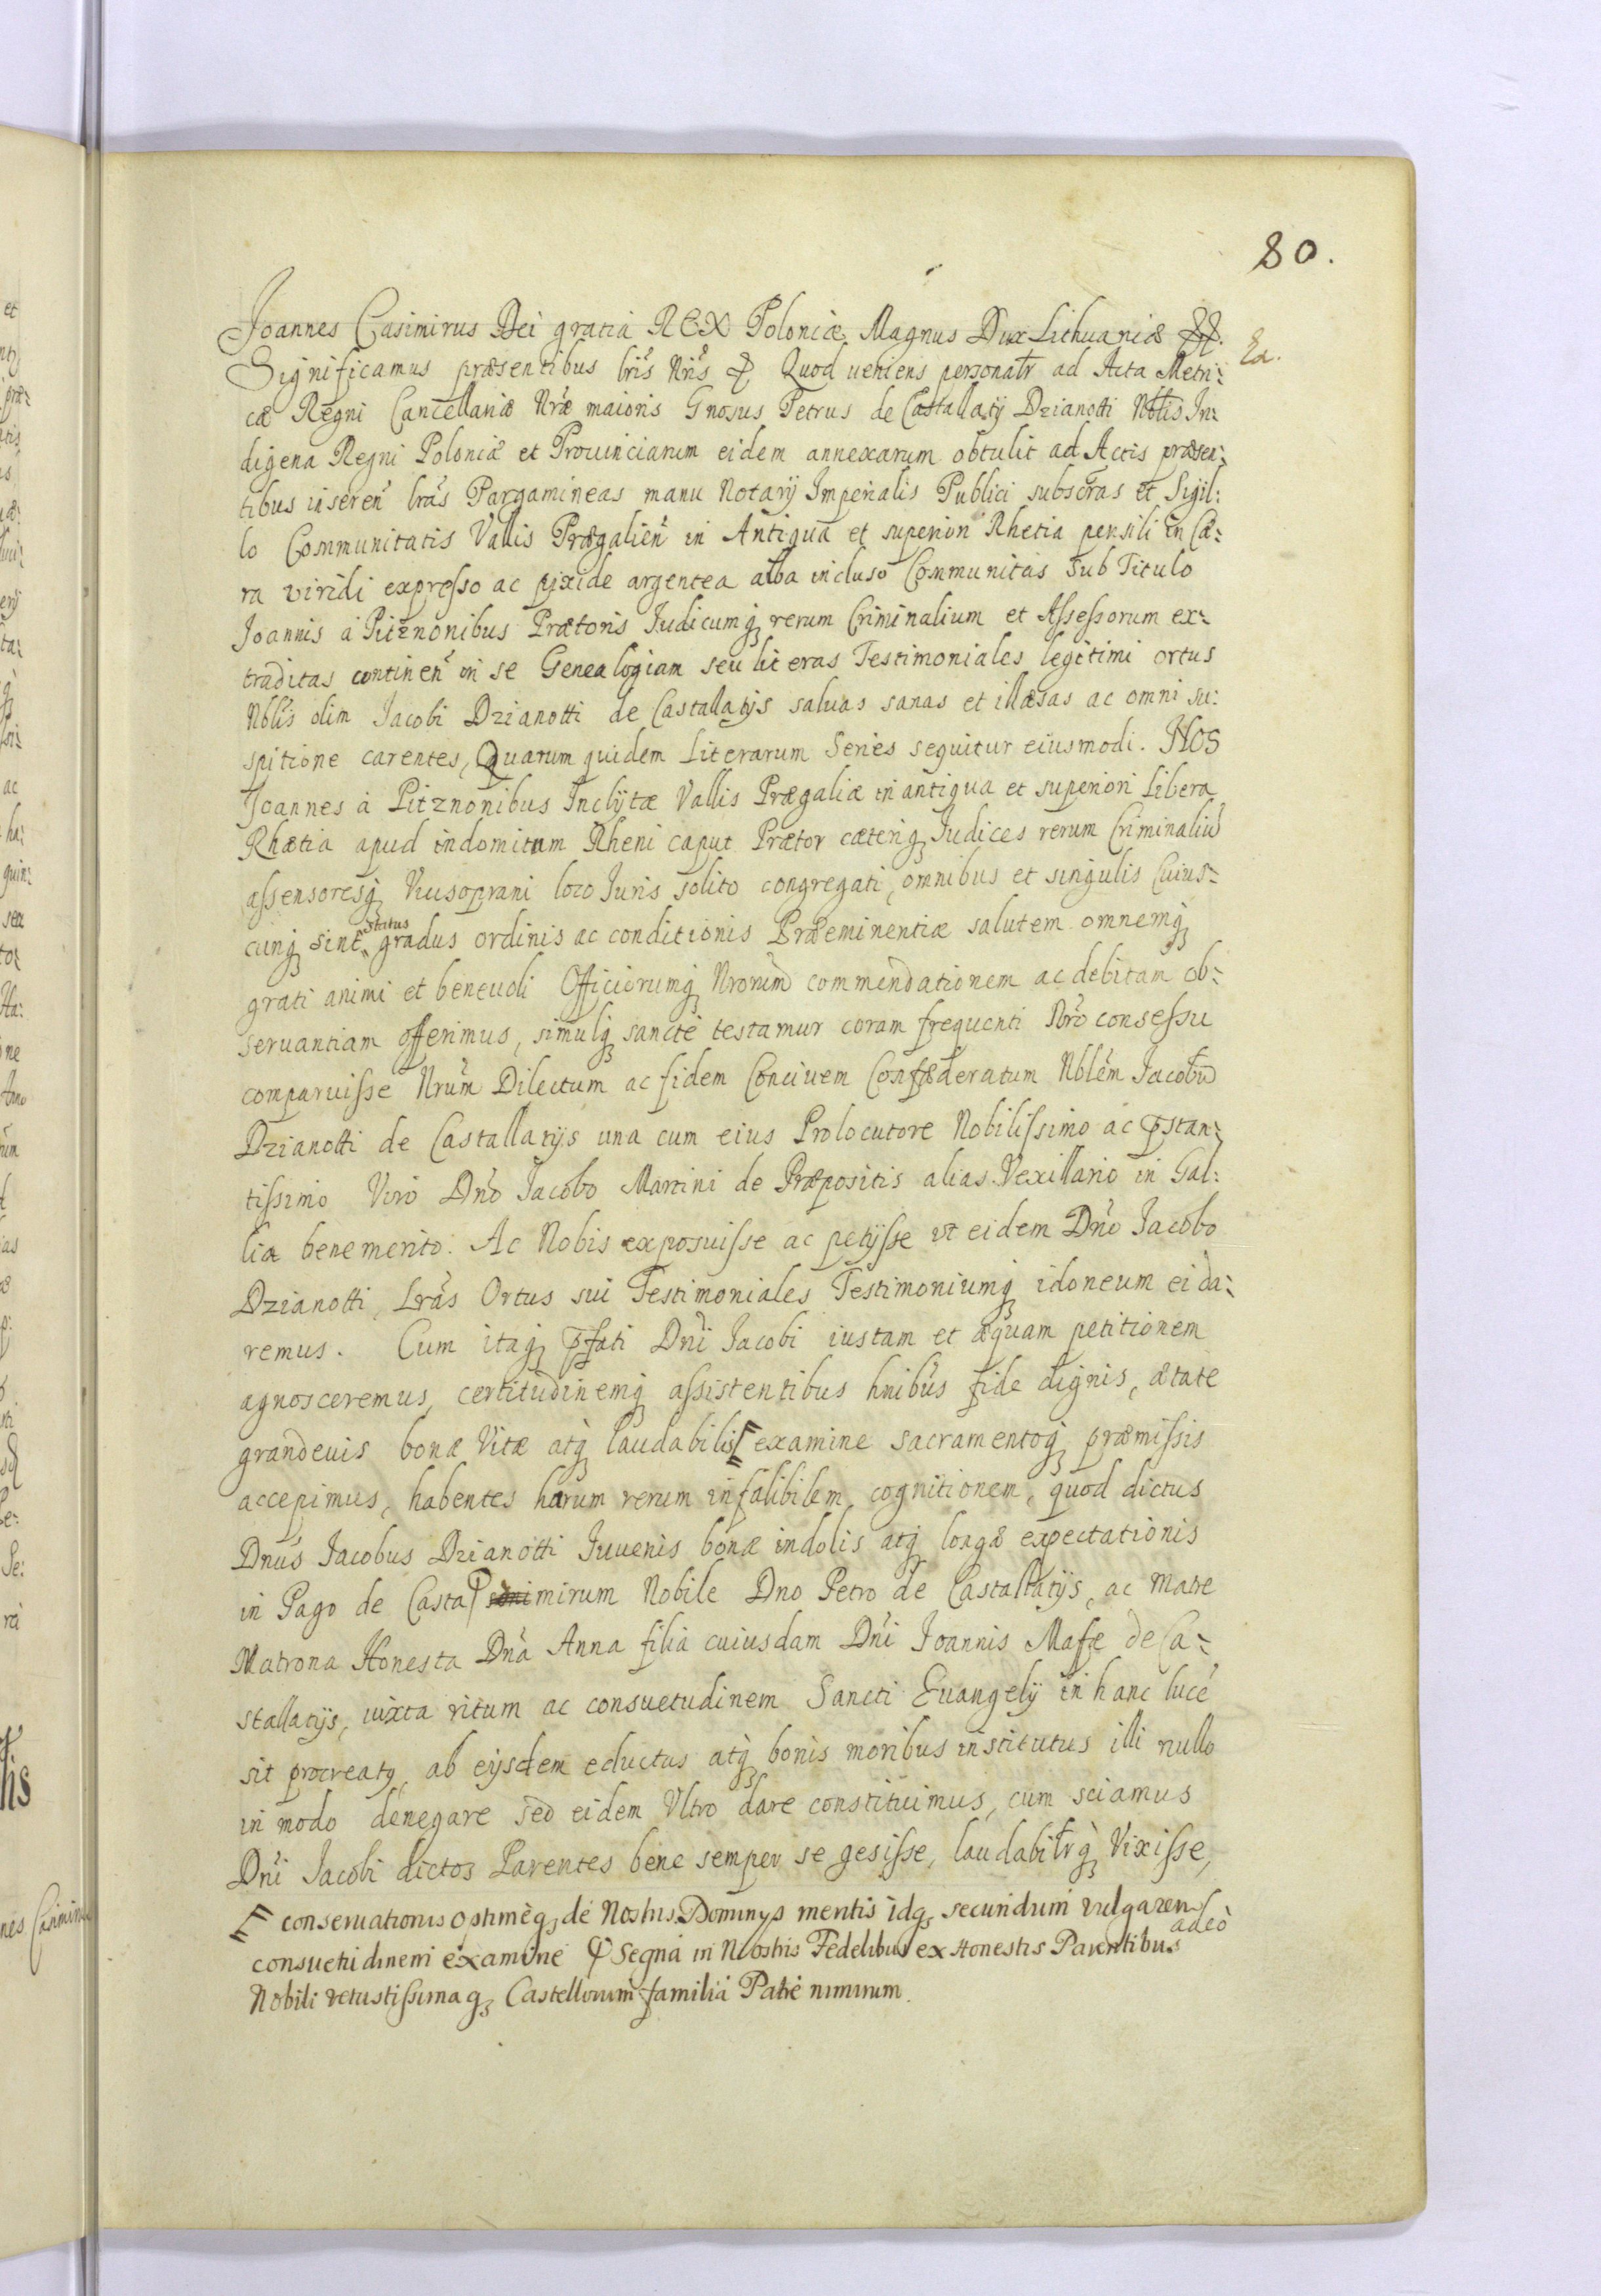 80.
Joannes Casimirus Dei gratiá REX Poloniæ Magnus Dux Lithuaniæ &&.
Significamus præsentibus lris Nris & Quod ueniens personalr ad Acta Metri:
cæ Regni Cancellariæ Nræ maioris Gnosus Petrus de Castallatij Dzianotti Nblis In:
digena Regni Poloniæ et Prouinciarum eidem annexarum obtulit ad Actis præsen:
tibus inseren lras Pargamineas manu Notarij Imperialis Publici subscras et Sigil:
lo Communitatis Vallis Prægalien in Antiqua et superiori Rhetia pensili in Cæ:
ra viridi expresso ac pixide argentea alba incluso Communitas sub Titulo
Joannis a Pitznonibus Prætoris Judicumq rerum Criminalium et Assessorum ex:
traditas continen in se Genealogiam seu literas Testimoniales legitimi ortus
Nblis olim Jacobi Dzianotti de Castallatijs saluas sanas et illæsas ac omni su:
spitione carentes, Quarum quidem Literarum Series sequitur eiusmodi. NOS
Joannes à Pitznonibus Inclÿtæ Vallis Prægaliæ in antiqua et superiori Libera
Rhætia apud indomitum Rheni caput Prætor cæteriq Judices rerum Criminaliu
assensoresq Vicosoprani loco Juris solito congregati, omnibus et singulis Cuius:
cunq sint status gradus ordinis ac conditionis Præeminentiæ salutem omnemq
grati animi et beneuoli Officiorumq Nrorum commendationem ac debitam ob:
seruantiam offerimus, simulq sanctè testamur coram frequenti Nro consessu
comparuisse Nrum Dilectum ac fidem Conciuem Confæderatum Nblem Jacobu
Dzianotti de Castallatijs una cum eius Prolocutore Nobilissimo ac pstan:
tissimo Viro Dno Jacobo Martini de Præpositis alias Vexillario in Gal:
lia benemerito. Ac Nobis exposuisse ac petijsse vt eidem Dno Jacobo
Dzianotti, Lras Ortus sui Testimoniales Testimoniumq idoneum ei da:
remus. Cum itaq pfati Dni Jacobi iustam et æquam petitionem
agnosceremus, certitudinemq assistentibus hnibus fide dignis, ætate
grandeuis bonæ Vitæ atq laudabilis examine sacramentoq præmissis
accepimus, habentes harum rerum infalibilem cognitionem, quod dictus
Dnus Jacobus Dzianotti Juuenis bonæ indolis atq longæ expectationis
in Pago de Casta mirum Nobile Dno Petro de Castallatijs, ac Matre
Matrona Honesta Dna Anna filia cuiusdam Dni Joannis Mafe de Ca:
stallatijs, iuxta ritum ac consuetudinem Sancti Euangelij in hanc luce
sit procreatq, ab eijsdem eductus atq bonis moribus institutus illi nullo
in modo denegare sed eidem Vltro dare constituimus, cum sciamus
Dni Jacobi dictos Parentes bene semper se gesisse, laudabilrq Vixisse,
conseruationis optimèq de Nostris Dominys meritis idq secundum vulgarem
adeò
consuetudinem examine Segna in Nostris Fedelibus ex Honestis Parentibus
Nobili vetustissimaq Castellorum familiá Patre nimirum.